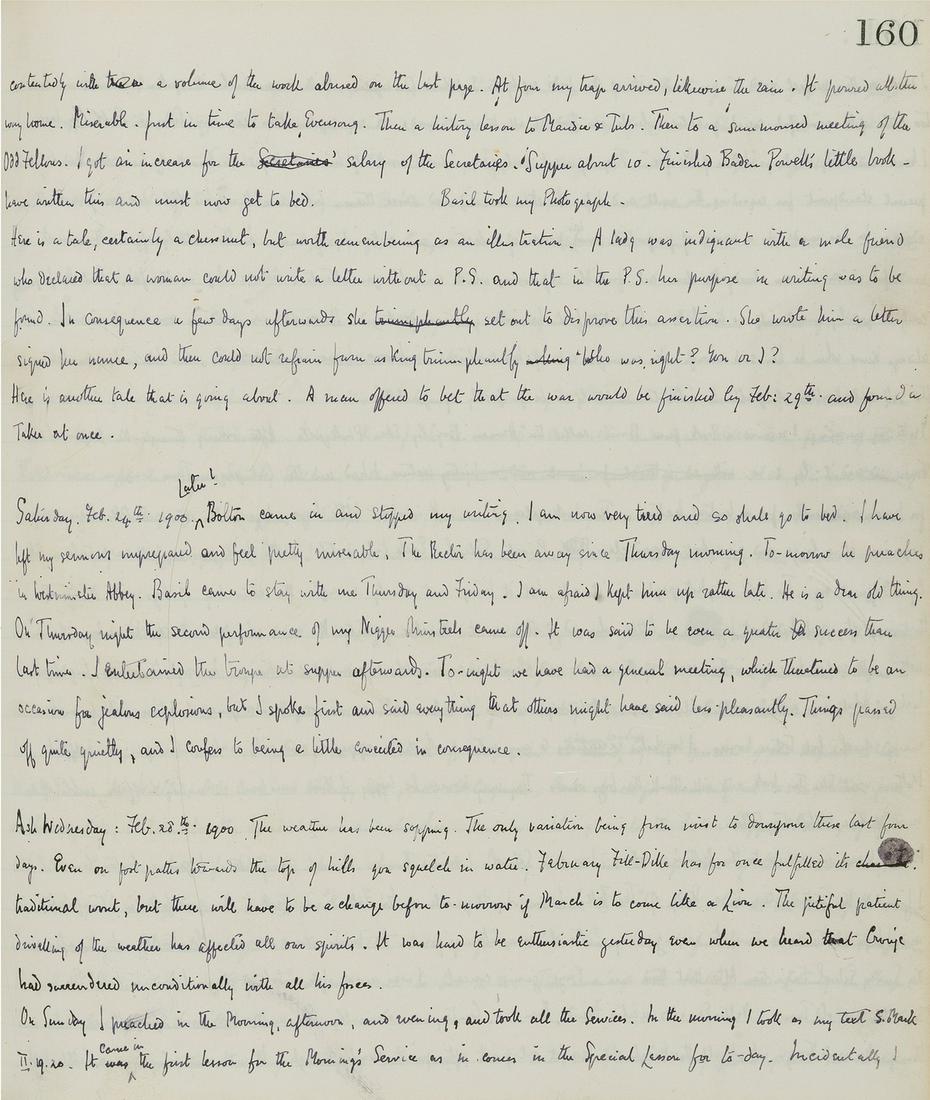 160
contentedly with a volume of the work abused on the last page. At four my trap arrived, likewise the rain. It poured all the
way home. Miserable. Just in time to take Evensong. Then a history lesson to Maudie & Tubs. Then to a summoned meeting of the
Odd Fellows. I got an increase for the Secretaries' salary of the Secretaries. Supper about 10. Finished Baden Powell's little book -
have written this and must now get to bed. Basil took my Photograph.
Here is a tale, certainly a chesnut, but worth remembering as an illustration. A lady was indignant with a male friend
who declared that a woman could not write a letter without a P.S. and that in the P.S. her purpose in writing was to be
found. In consequence a few days afterwards she triumphantly set out to disprove this assertion. She wrote him a letter
signed her name, and then could not refrain from asking triumphantly asking "Who was right? You or I?
Here is another tale that is going about. A man offered to bet that the war would be finished by Feb: 29th and found a
taker at once.
Later!
Saturday. Feb. 24th 1900. Bolton came in and stopped my writing. I am now very tired and so shall go to bed. I have
left my sermons unprepared and feel pretty miserable. The Rector has been away since Thursday morning. To-morrow he preaches
in Westminster Abbey. Basil came to stay with me Thursday and Friday. I am afraid I kept him up rather late. He is a dear old thing.
On Thursday night the second performance of my Nigger Minstrels came off. It was said to be even a greater success than
last time. I entertained the troupe at supper afterwards. To-night we have had a general meeting, which threatened to be an
occasion for jealous explosions, but I spoke first and said everything that others might have said less pleasantly. Things passed
off quite quietly, and I confess to being a little conceited in consequence.
Ash Wednesday: Feb. 28.th 1900 The weather has been sopping. The only variation being from mist to downpour these last four
days. Even on foot paths towards the top of hills you squelch in water. February Fill-Dike has for once fulfilled its
traditional wont, but there will have to be a change before to-morrow if March is to come like a Lion. The pitiful patient
drivelling of the weather has affected all our spirits. It was hard to be enthusiastic yesterday even when we heard that Cronje
had surrendered unconditionally with all his forces.
On Sunday I preached in the Morning, afternoon, and evening, and took all the Services. In the morning I took as my text S. Mark
came in
II. 19. 20. It was the first lesson for the Morning's Service as it comes in the Special Lesson for to-day. Incidentally I